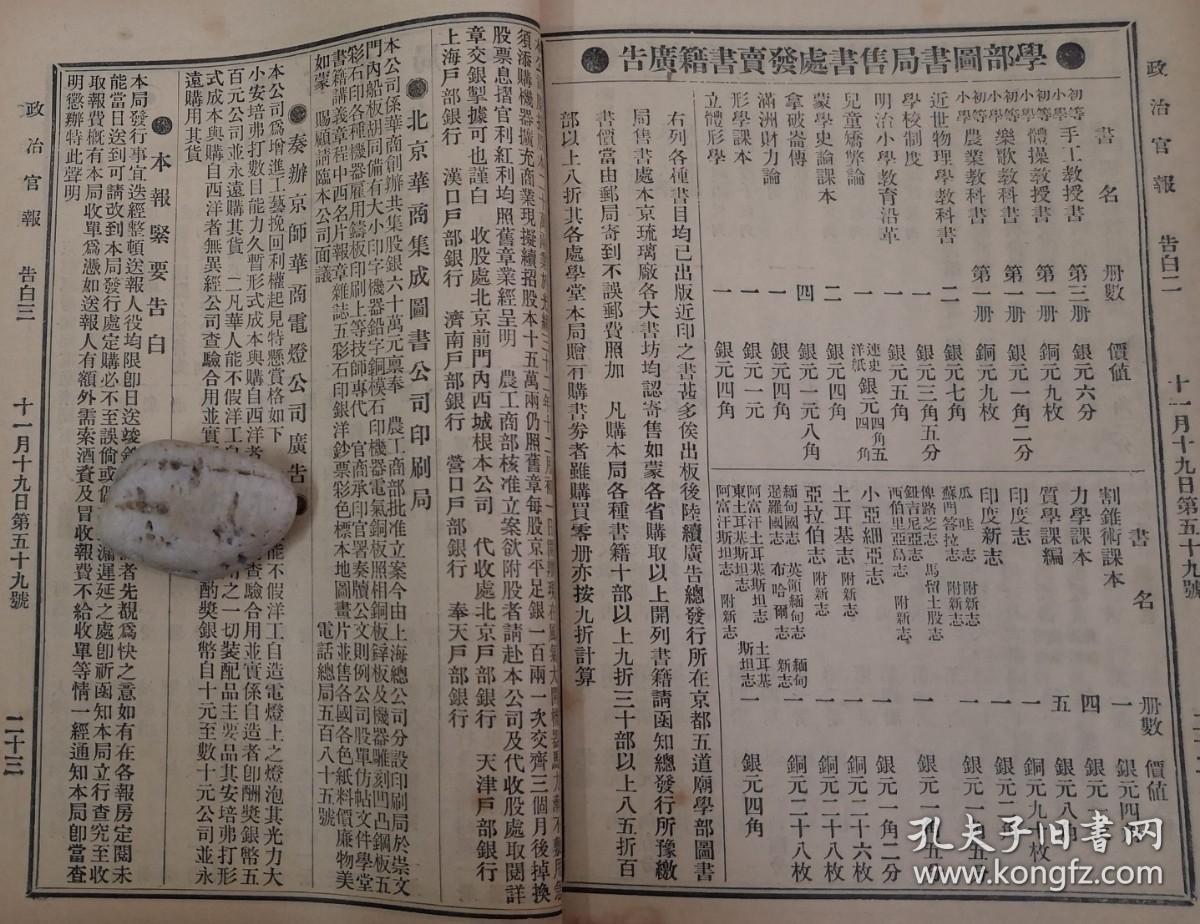 政治官報 告白二 十一月十九日第五十九號
學部圖書局售書處發賣書籍廣告
書名 册數 價值
初等小學手工教授書 第三册 銀元六分
初等小學體操教授書 第一册 銅元九枚
初等小學樂歌教科書 第一册 銀元一角二分
初等小學農業教科書 第一册 銅元九枚
近世物理學教科書 二 銀元七角
學校制度 一 銀元三角五分
明治小學教育沿革 一 銀元五角
兒童矯弊論 一 連史 銀元四角五 洋紙 四角
蒙學史論課本 二 銀元四角
拿破崙傳 四 銀元一元八角
滿洲財力論 一 銀元四角
形學課本 一 銀元一元
立體形學 一 銀元四角
書名 册數 價值
割錐術課本 一 銀元四
力學課本 四 銀元二
質學課編 五 銀元八
印度新志 一 銅元九枚
印度志 一 銀元四
瓜哇志 附新志
蘇門答拉志 附新志 一 銀元一
俾路芝志 馬留土股志
鈕吉尼亞志
西伯里亞島志 附新志 一 銀元一
小亞細亞志 一 銀元一角二分
土耳基志 附新志 一 銅元二十六枚
亞拉伯志 附新志 一 銅元二十八枚
緬甸國志 英領緬甸志 緬甸新志
暹羅國志 布哈爾志 一 銅元二十八枚
阿富汗土耳基斯坦志 土耳基斯坦志
東土耳基斯坦志
阿富汗斯坦志 附新志 一 銀元四角
右列各種書目均已出版近印之書甚多俟出板後陸續廣告總發行所在京都五道廟學部圖書
局售書處本京琉璃廠各大書坊均認寄售如蒙各省購取以上開列書籍請函知總發行所豫繳
書價當由郵局寄到不誤郵費照加 凡購本局各種書籍十部以上九折三十部以上八五折百
部以上八折其各處學堂本局贈有購書劵者雖購買零册亦按九折計算
須添購機器擴充商業現擬續招股本十五萬兩仍照舊章每股京平足銀一百兩一次交齊三個月後掉換
股票息摺官利紅利均照舊章業經呈明 農工商部核准立案欲附股者請赴本公司及代收股處取閱詳
章交銀掣據可也謹白 收股處北京前門內西城根本公司 代收處北京戶部銀行 天津戶部銀行
上海戶部銀行 漢口戶部銀行 濟南戶部銀行 營口戶部銀行 奉天戶部銀行
北京華商集成圖書公司印刷局
本公司係華商創辦共集股銀六十萬元禀奉 農工商部批准立案今由上海總公司分設印刷局於崇文
門內船板胡同備有大小印字機器鉛字銅模石印機器電氣銅板照相銅板鋅板及機器雕刻凹凸鋼板五
彩石印各種機器雇用鑄板印刷上等技師專代 官商承印官署奏牘公文則例公司股單仿帖文件學堂
書籍講義章程中西名片報章雜誌五彩石印銀洋鈔票彩色標本地圖畫片並售各國各色紙料價廉物美
如蒙 賜顧請臨本公司面議 電話總局五百八十五號
奏辦京師華商電燈公司廣告
本公司爲增進工藝挽回利權起見特懸賞格如下
能不假洋工自造電燈上之燈泡其光力大
小安培弗打數目能力久暫形式成本與購自西洋者
查驗合用並實係自造者卽酬獎銀幣五
百元公司並永遠購其貨 二凡華人能不假洋工自
之一切裝配品主要品其安培弗打形
式成本與購自西洋者無異經公司查驗合用並實
酌獎銀幣自十元至數十元公司並永
遠購用其貨
本報緊要告白
本局發行事宜送經整頓送報人役均限卽日送竣
者先覩爲快之意如有在各報房定閱未
能當日送到可請改到本局發行處定購必不至誤倘或
漏遲延之處卽祈函知本局立行查究至收
取報費槪有本局收單爲憑如送報人有額外需索酒資及冒收報費不給收單等情一經通知本局卽當查
明懲辦特此聲明
政治官報 告白三 十一月十九日第五十九號 二十三
孔夫子旧书网
www.kongfz.com